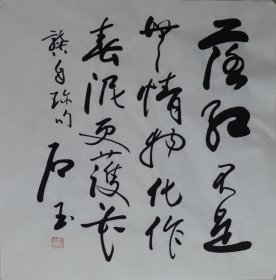 落红不是
无情物化作
春泥更护花
龚自珍句
石玉